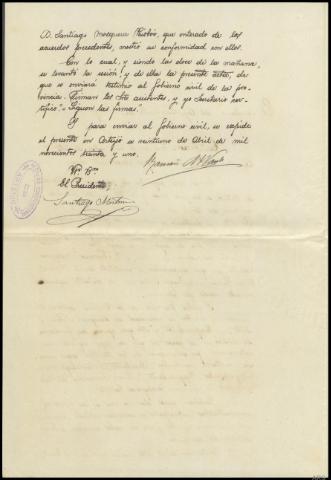 D. Santiago Mosquera, que enterado de los
acuerdos precedentes, mostró su conformidad con ellos.
Con lo cual, y siendo las doce de la mañana,
se levantó la sesión, y de ella la presente acta, de
que se enviará testimonio al Gobierno civil de la pro-
vincia. Firman los Sres asistentes, y yo Secretario cer-
tifico". "Siguen las firmas."
Y para enviar al Gobierno civil, se expide
el presente en a veintiuno de Abril de mil
novecientos treinta y uno.
Vº Bº
El Presidente,
Santiago